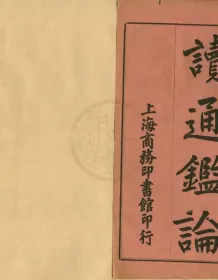 讀通鑑論
上海商務印書館印行